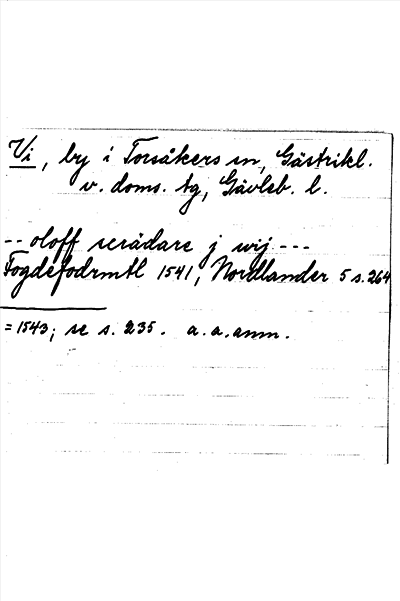 Vi, by i Torsåkers sn, Gästrikl.
v. doms. tg, Gävleb. l.
-- oloff scrädare j wij ---
Fogdefodrmtl 1541, Nordlander 5 s. 264
= 1543; se s. 235. a. a. anm.